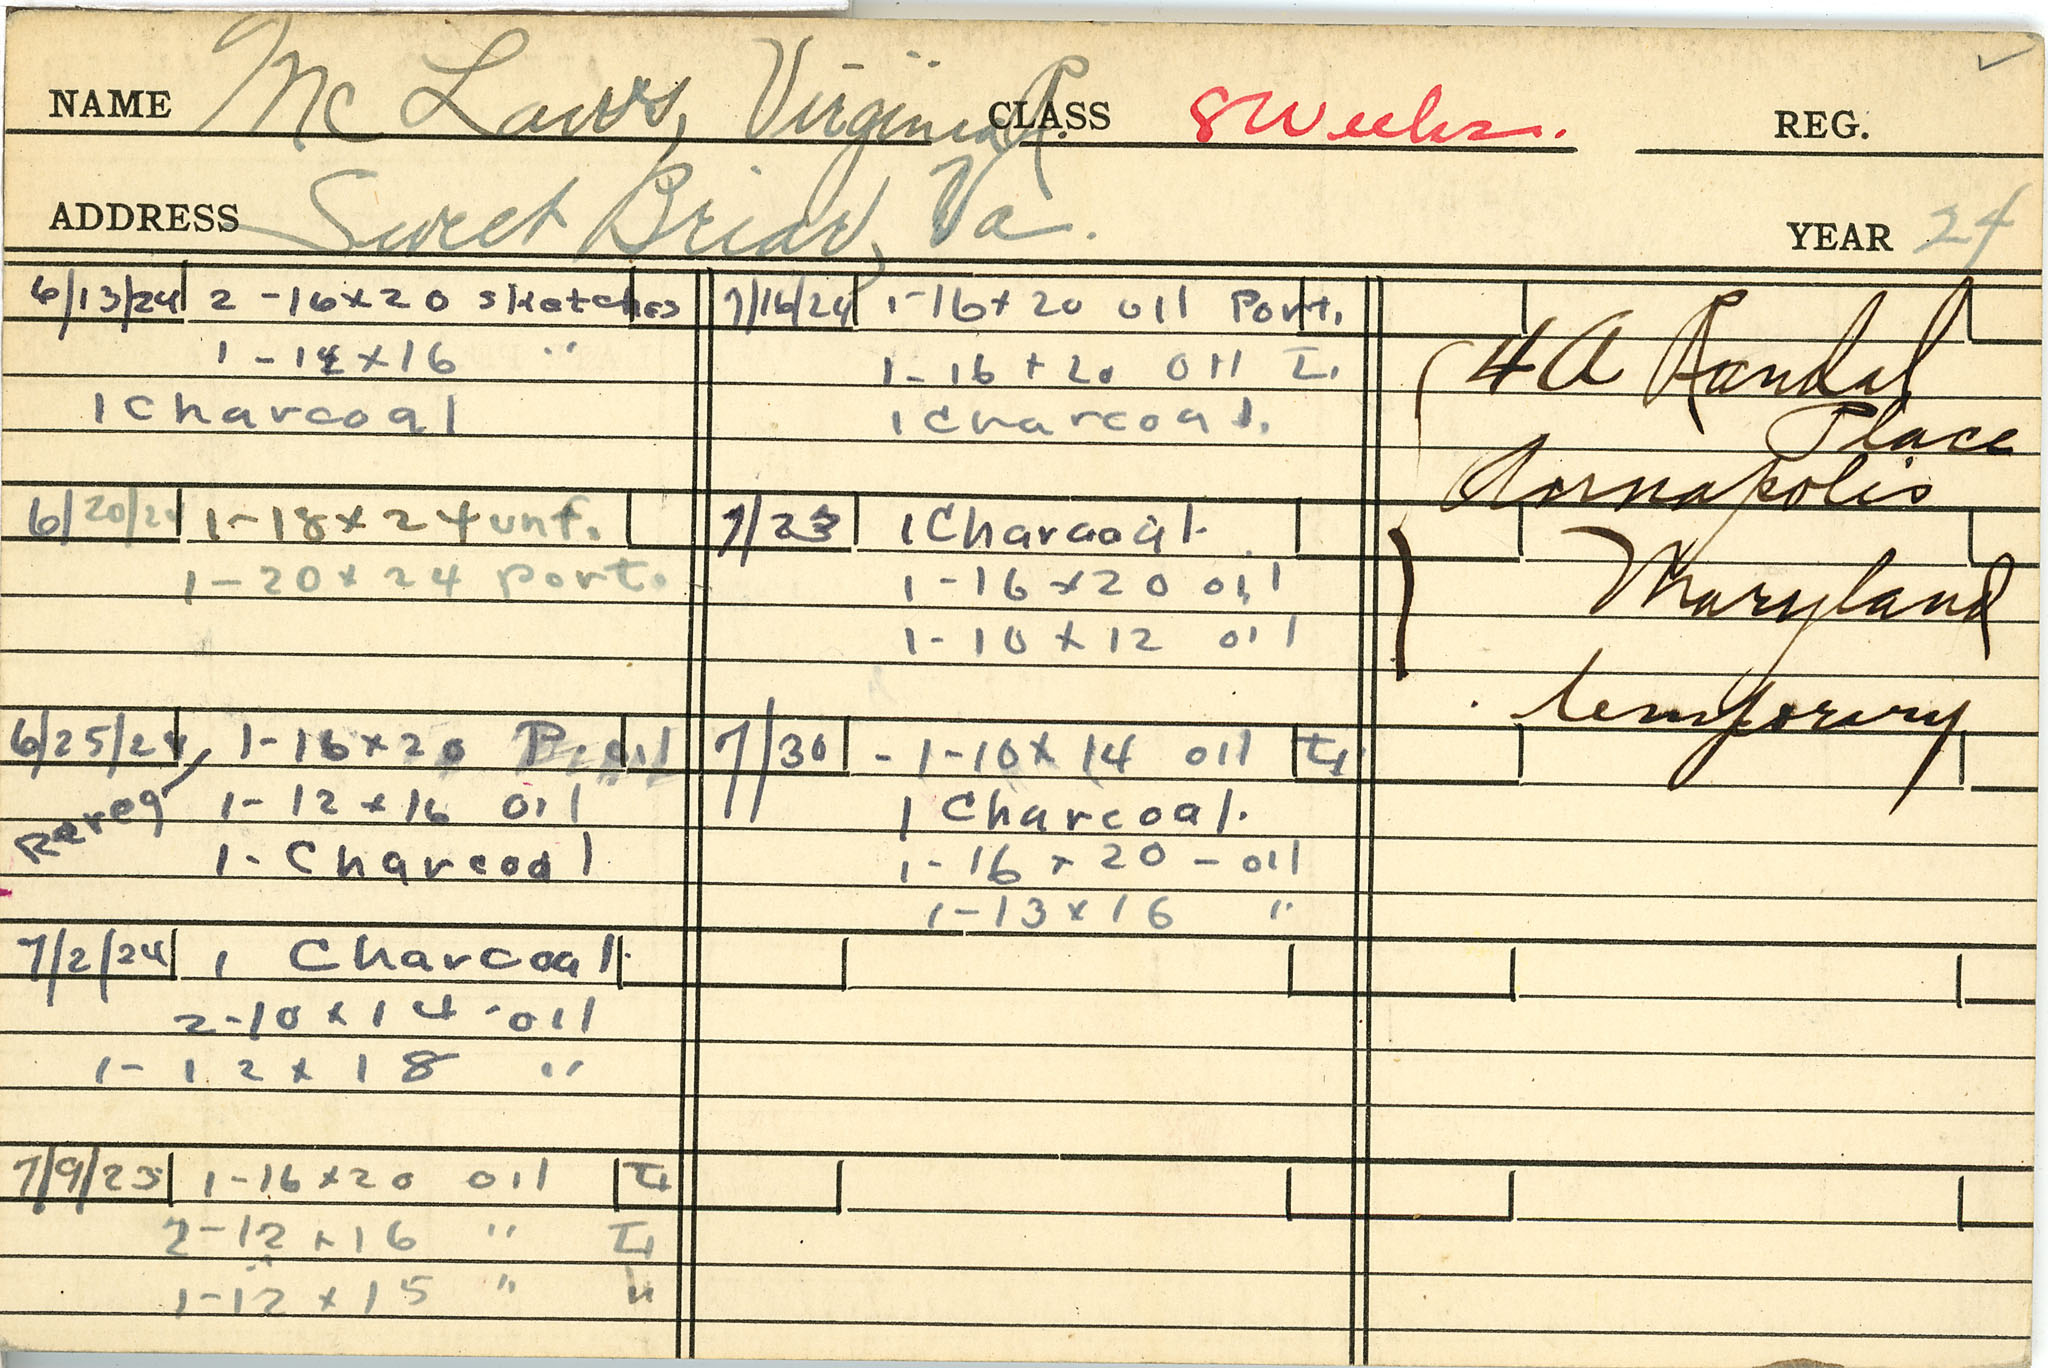 NAME Mc Laws, Virginia R. CLASS 8 Weeks. REG.
ADDRESS Sweet Briar, Va. YEAR 24
6/13/24 2 - 16 x 20 sketches
1 - 12 x 16 "
1 Charcoal
6/20/24 1 - 18 x 24 unf.
1 - 20 x 24 port.
6/25/24 1 - 16 x 20 oil
Rereg 1 - 12 x 16 oil
1 - Charcoal
7/2/24 1 Charcoal.
2 - 10 x 14 - oil
1 - 12 x 18 "
7/9/25 1 - 16 x 20 oil L
2 - 12 x 16 " L
1 - 12 x 15 " "
7/16/24 1 - 16 x 20 oil Port.
1 - 16 x 20 oil L.
1 Charcoal.
7/23 1 Charcoal.
1 - 16 x 20 oil
1 - 10 x 12 oil
7/30 - 1 - 10 x 14 oil L
1 Charcoal.
1 - 16 x 20 - oil
1 - 13 x 16 "
4 A Randal
Place
Annapolis
Maryland
temporary